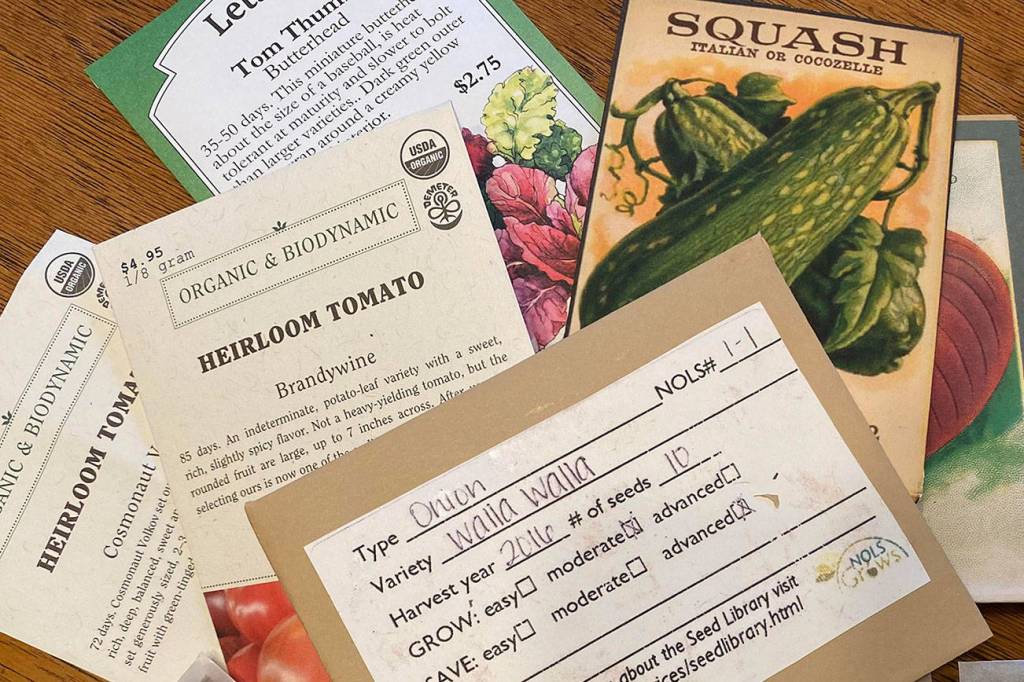 Tom Thum
Butterhead
35–50 days. This miniature butterhe
about the size of a baseball, is heat
tolerant at maturity and slower to bolt
than larger varieties.. Dark green outer
around a creamy yellow
$2.75
SQUASH
ITALIAN OR COCOZELLE
USDA
ORGANIC
DEMETER
$4.95
1/8 gram
ORGANIC & BIODYNAMIC
HEIRLOOM TOMATO
Brandywine
85 days. An indeterminate, potato-leaf variety with a sweet,
rich, slightly spicy flavor. Not a heavy-yielding tomato, but the
rounded fruit are large, up to 7 inches across. After
selecting ours is now one of the
USDA
ORGANIC
ANIC & BIODYNAMIC
HEIRLOOM TOMA
Cosmonaut V
72 days. Cosmonaut Volkov se
rich, deep, balanced, sweet a
set generously sized, 2-3
fruit with green-tinged
NOLS# 1-1
Type Onion
Variety Walla Walla
Harvest year 2016 # of seeds 10
GROW: easy moderate advanced
SAVE: easy moderate advanced
about the Seed Library visit
ices/seedlibrary.html
NOLS
Grows!